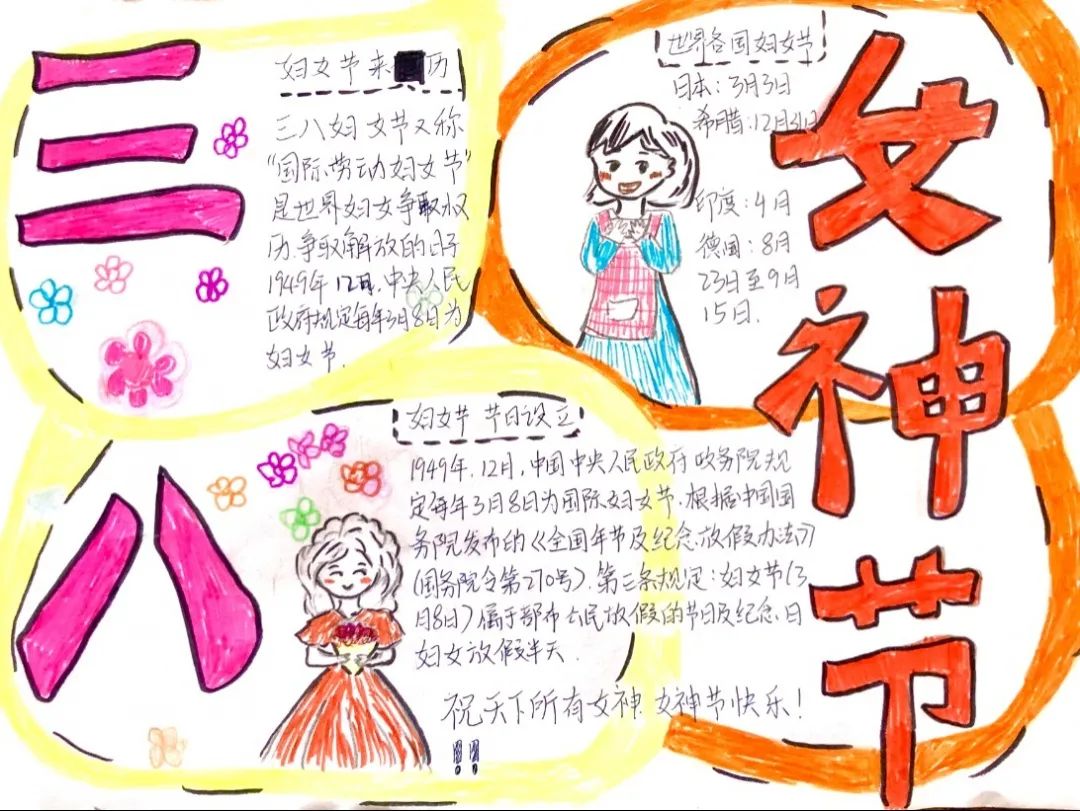 三
八
妇女节来历
三八妇女节又称
“国际劳动妇女节”
是世界妇女争取权
历、争取解放的日子
1949年12月,中央人民
政府规定每年3月8日为
妇女节.
世界各国妇女节
日本:3月3日
希腊:12月31日
印度:4月
德国:8月
23日至9月
15日.
女
神
节
妇女节 节日设立
1949年,12月,中国中央人民政府政务院规
定每年3月8日为国际妇女节.根据中国国
务院发布的《全国年节及纪念放假办法》
(国务院令第270号),第三条规定:妇女节(3
月8日)属于部布公民放假的节日及纪念日
妇女放假半天.
祝天下所有女神 女神节快乐!
!!